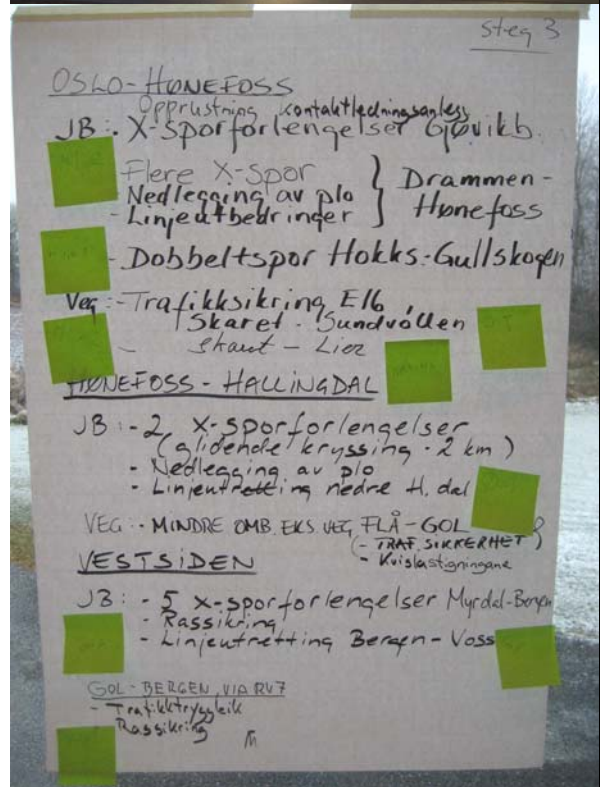 steg 3
OSLO-HØNEFOSS
Opprustning kontaktledningsanlegg
JB: - X-sporforlengelser Gjøvikb.
Flere X-spor
- Nedlegging av plo
- Linjeutbedringer
} Drammen-
Hønefoss
- Dobbeltspor Hokks.-Gullskogen
Veg: - Trafikksikring E16,
Skaret - Sundvollen
- Skaret - Lier
HØNEFOSS - HALLINGDAL
JB: - 2 X-sporforlengelser
(glidende kryssing - 2 km)
- Nedlegging av plo
- Linjeutretting nedre H.dal
VEG: - MINDRE OMB. EKS. VEG, FLÅ-GOL
(- TRAF.SIKKERHET)
- Kvislastigningane
VESTSIDEN
JB: - 5 X-sporforlengelser Myrdal-Bergen
- Rassikring
- Linjeutretting Bergen - Voss
GOL - BERGEN, VIA RV7
- Trafikktryggleik
- Rassikring